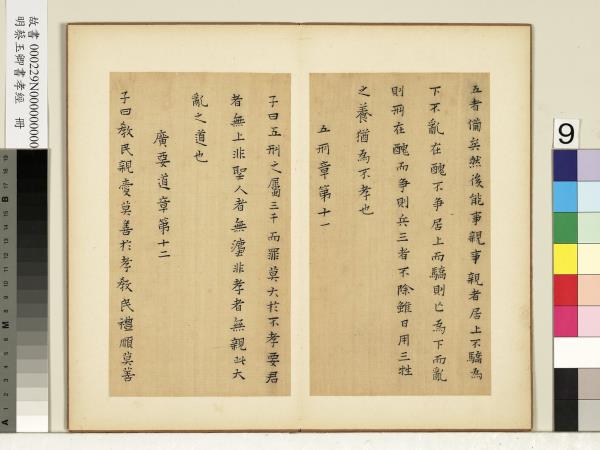 五者備矣然後能事親事親者居上不驕為
下不亂在醜不爭居上而驕則亡為下而亂
則刑在醜而爭則兵三者不除雖日用三牲
之養猶為不孝也
五刑章第十一
子曰五刑之屬三千而罪莫大於不孝要君
者無上非聖人者無灋非孝者無親此大
亂之道也
廣要道章第十二
子曰教民親愛莫善於孝教民禮順莫善
故書 000229N000000000
明蔡玉卿書孝經 冊
9
B
M
A